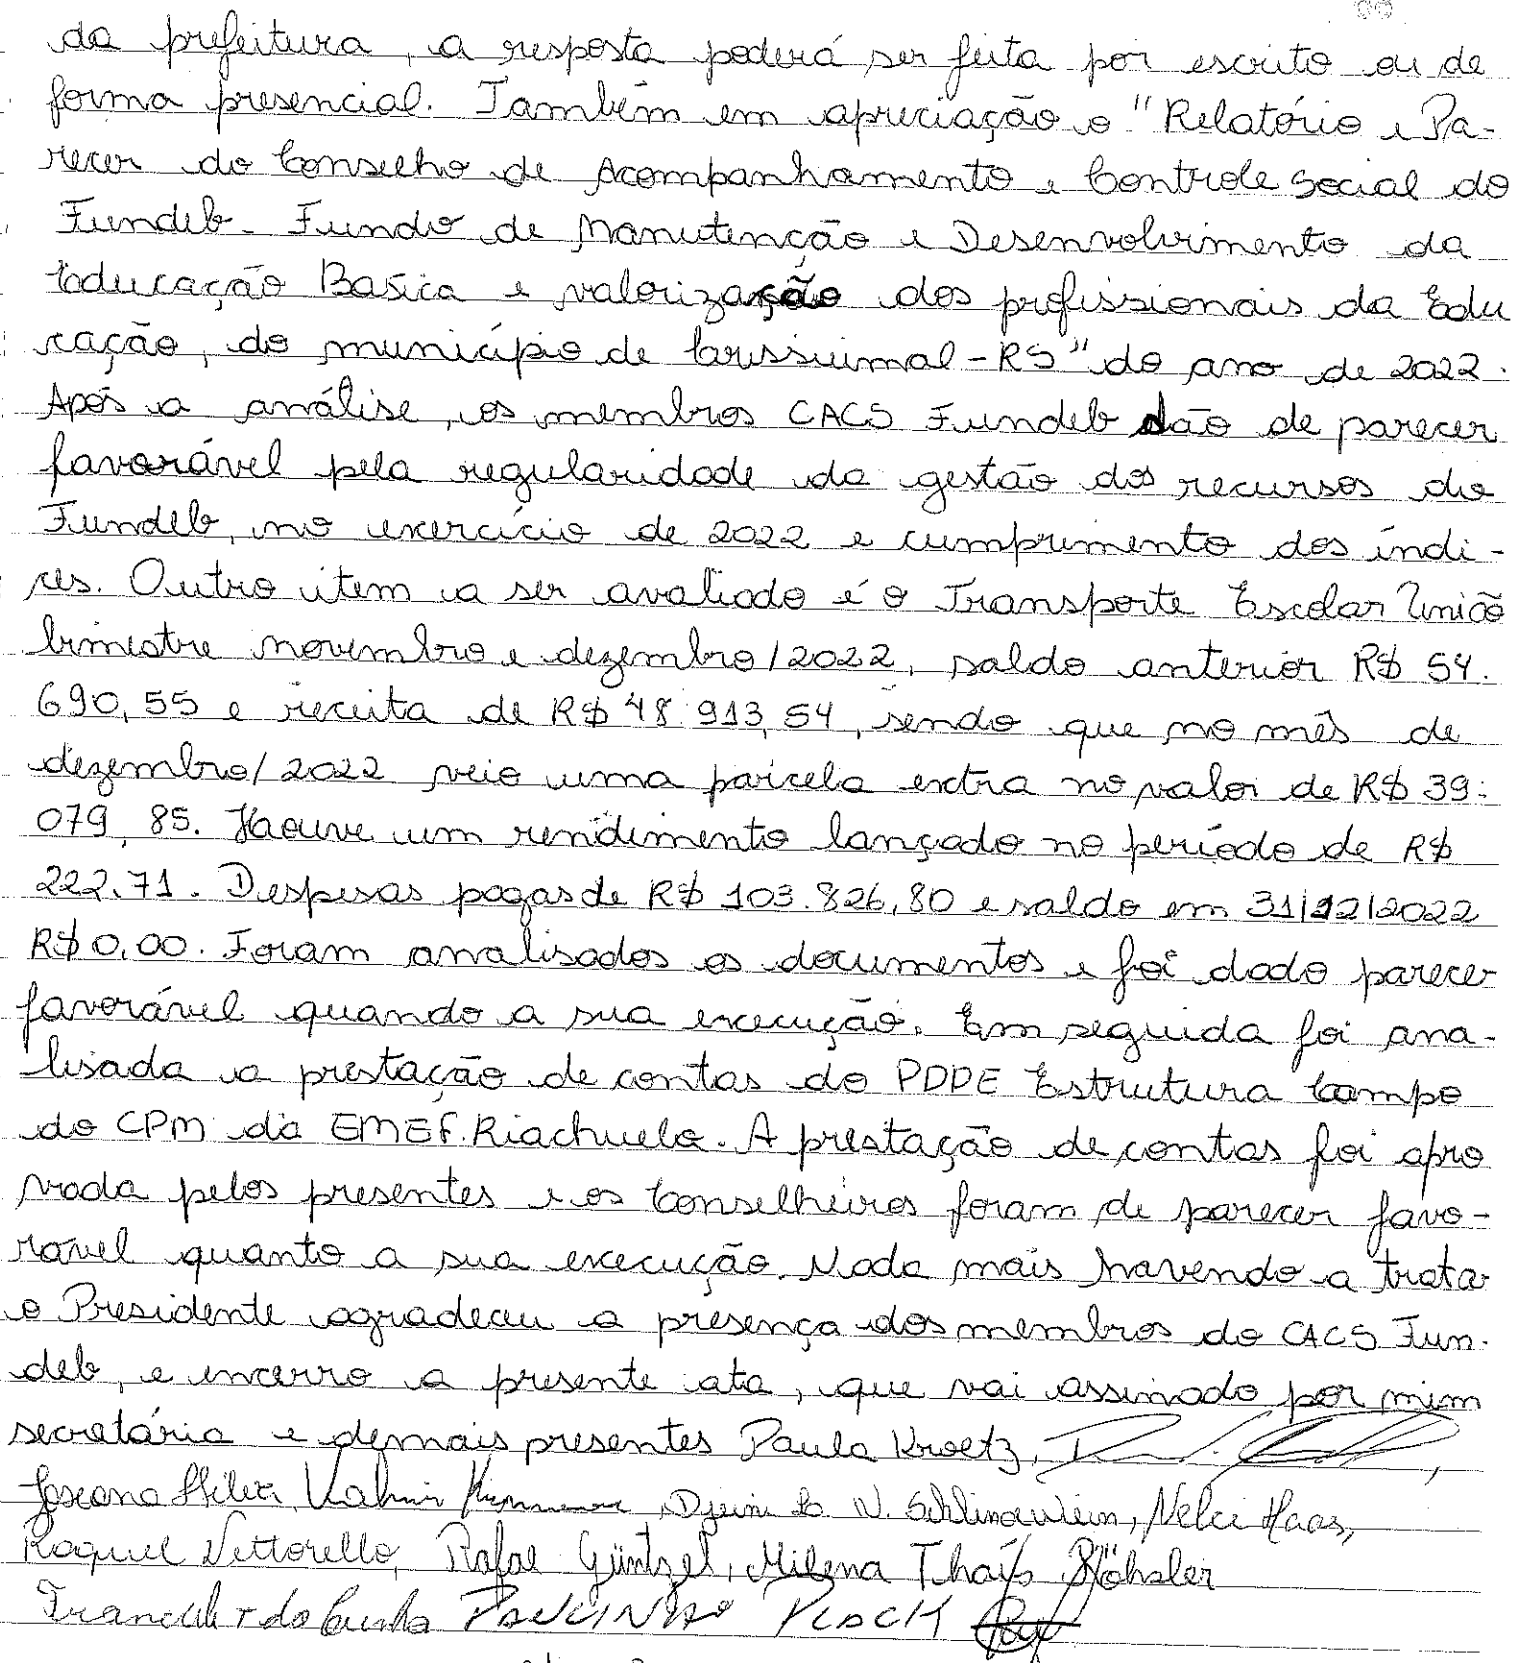 da prefeitura, a resposta poderá ser feita por escrito ou de
forma presencial. Também em apreciação o "Relatório e Pa-
recer do Conselho de Acompanhamento e Controle Social do
Fundeb - Fundo de Manutenção e Desenvolvimento da
Educação Basica e valorização dos profissionais da Edu
cação, do município de Crissiumal - RS" do ano de 2022.
Após a análise, os membros CACS Fundeb dão de parecer
favorável pela regularidade da gestão dos recursos do
Fundeb, no exercício de 2022 e cumprimento dos índi-
ces. Outro item a ser avaliado é o Transporte Escolar União
bimestre novembro e dezembro/2022, saldo anterior R$ 54.
690,55 e receita de R$ 48.913,54, sendo que no mês de
dezembro/2022 veio uma parcela extra no valor de R$ 39.
079,85. Haouve um rendimento lançado no período de R$
222.71. Despesas pagas de R$ 103.826,80 e saldo em 31/12/2022
R$ 0,00. Foram analisados os documentos e foi dado parecer
favorável quando a sua execução. Em seguida foi ana-
lisada a prestação de contas do PDDE Estrutura Campo
do CPM da EMEF. Riachuelo. A prestação de contas foi apro
vada pelos presentes e os Conselheiros foram de parecer favo-
rável quanto a sua execução. Nada mais havendo a tratar
o Presidente agradeceu a presença dos membros do CACS Fun-
deb, e encerro a presente ata, que vai assinado por mim
secretária e demais presentes Paula Kroetz,
Joseana Hiler, Djeini N. Schlindwein, Nelci Haas,
Raquel Vettorello, Rafael Güntzel, Milena Thaís Röhsler
da Cunha PAULINHO PLOCK